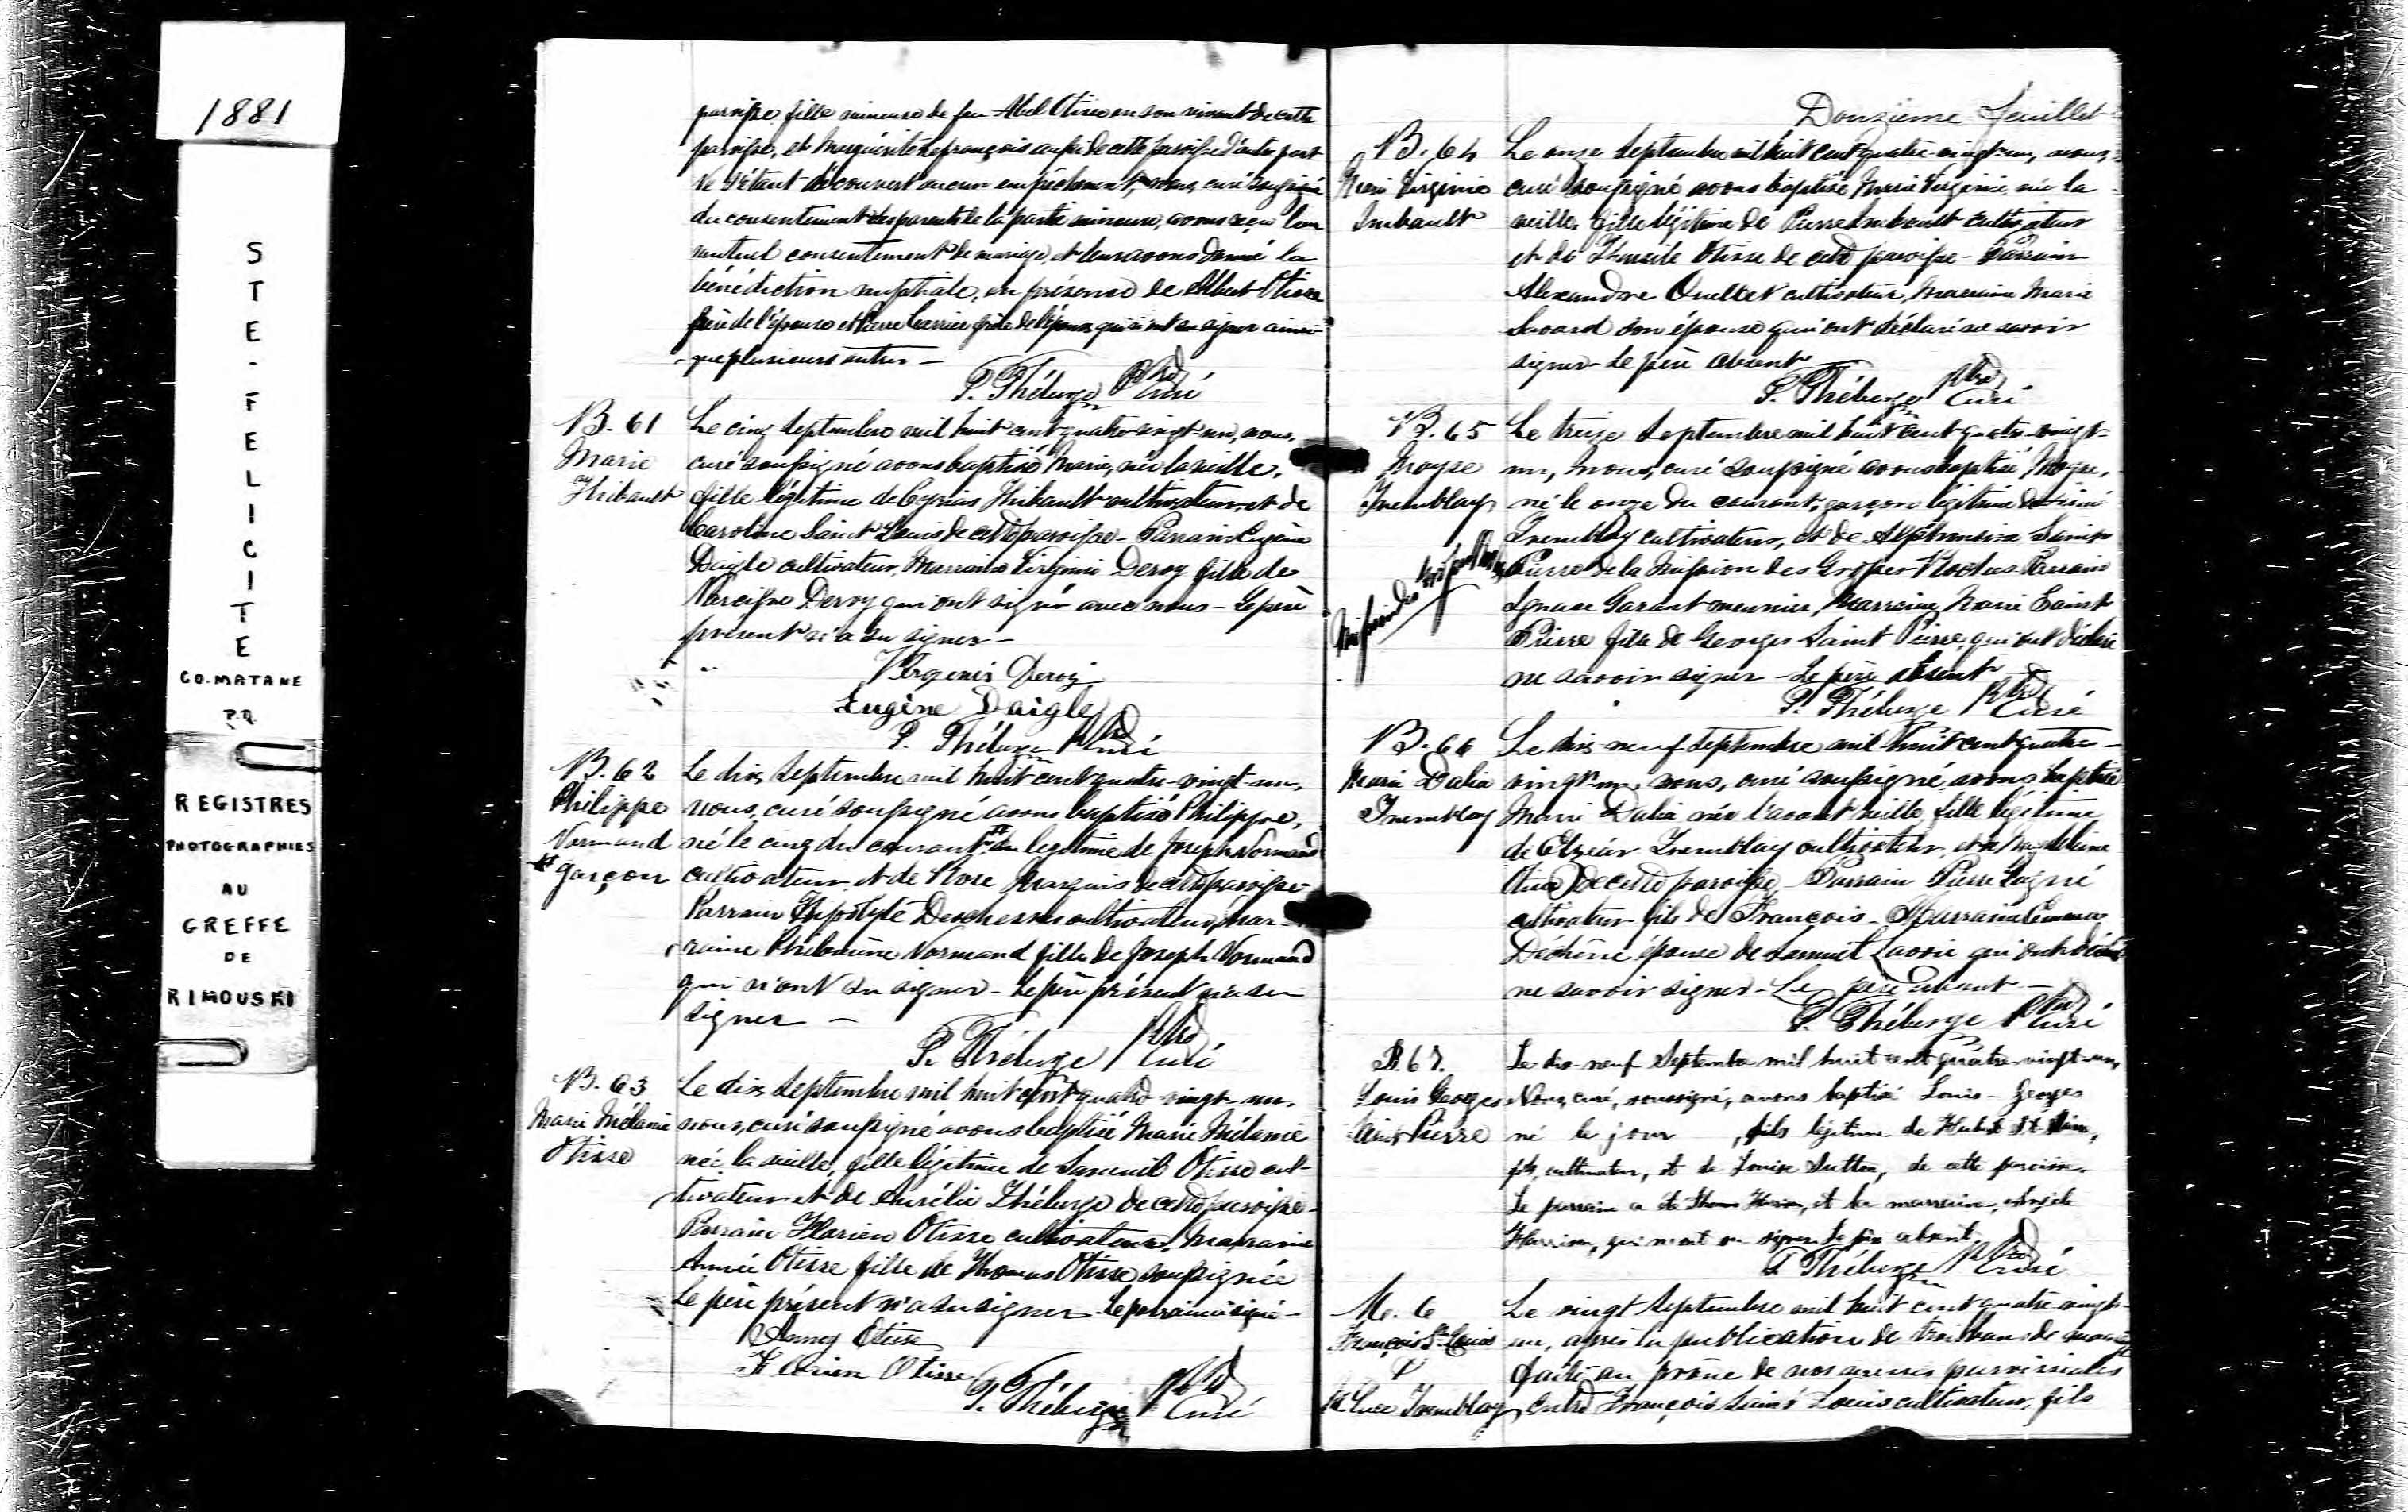 1881
STE-FELICITE
CO. MATANE
P.Q.
REGISTRES
PHOTOGRAPHIES
AU
GREFFE
DE
RIMOUSKI
paroisse fille mineure de feu Abel Otisse en son vivant de cette
paroisse, et Marguerite Lefrançois aussi de cette paroisse d'autre part
Ne s'étant découvert aucun empêchement, nous, curé soussigné
du consentement des parents de la partie mineure, avons reçu leur
mutuel consentement de mariage, et leur avons donné la
bénédiction nuptiale, en présence de Albert Otisse
frère de l'épouse et Pierre Carrier frère de l'époux qui n'ont su signer ainsi
que plusieurs autres —
P. Théberge Ptre Curé
B. 61
Marie
Thibault
Le cinq Septembre mil huit cent quatre-vingt-un, nous,
curé soussigné avons baptisé Marie, née la veille,
fille légitime de Cyprien Thibault cultivateur et de
Caroline Saint Louis de cette paroisse - Parrain Eugène
Daigle cultivateur, Marraine Virginie Deroy fille de
Narcisse Deroy qui ont signé avec nous - Le père
présent n'a su signer —
Virgenis Deroy
Eugène Daigle
P. Théberge Ptre Curé
B. 62
Philippe
Normand
# garçon
Le dix Septembre mil huit cent quatre-vingt-un,
nous, curé soussigné avons baptisé Philippe,
né le cinq du courant # légitime de Joseph Normand
cultivateur, et de Rose Marquis de cette paroisse
Parrain Hypolyte Deschesnes cultivateur, Mar-
raine Philomène Normand fille de Joseph Normand
qui n'ont su signer - Le père présent n'a su
signer —
P. Théberge Ptre Curé
B. 63
Marie Mélanie
Otisse
Le dix Septembre mil huit cent quatre-vingt-un,
nous, curé soussigné avons baptisé Marie Mélanie
née la veille, fille légitime de Samuel Otisse cul-
tivateur et de Aurélie Théberge de cette paroisse -
Parrain Florien Otisse cultivateur, Marraine
Annie Otisse fille de Thomas Otisse soussignée
Le père présent n'a su signer. Le parrain a signé -
Anney Otisse
Florien Otisse
P. Théberge Ptre Curé
Douzième feuillet
B. 64
Marie Virginie
Imbault
Le onze Septembre mil huit cent quatre-vingt-un, nous,
curé soussigné avons baptisé Marie Virginie, née la
veille, fille légitime de Pierre Imbault cultivateur
et de Otisse de cette paroisse - Parrain
Alexandre Ouellet cultivateur, Marraine Marie
Savard son épouse qui ont déclaré ne savoir
signer - Le père absent
P. Théberge Ptre Curé
B. 65
Moyse
Tremblay
Mission des
Le treize Septembre mil huit cent quatre-vingt-
un, Nous, curé soussigné avons baptisé Moyse,
né le onze du courant, garçon légitime de
Tremblay cultivateur, et de Alphonsine Saint
Pierre de la Mission des Parrain
Ignace Garant meunier, Marraine Marie Saint
Pierre fille de Georges Saint Pierre, qui ont déclaré
ne savoir signer - Le père absent
P. Théberge Ptre Curé
B. 66
Marie Dalia
Tremblay
Le dix neuf Septembre mil huit cent quatre-
vingt-un, nous, curé soussigné, avons baptisé
Marie Dalia née l'avant veille, fille légitime
de Elzéar Tremblay cultivateur, et de Magdeleine
Otisse de cette paroisse - Parrain Pierre Gagné
cultivateur fils de François - Marraine Emma
Dechêne épouse de Samuel Lavoie qui ont déclaré
ne savoir signer - Le père absent —
P. Théberge Ptre Curé
B. 67.
Louis Georges
Saint Pierre
Le dix-neuf Septembre mil huit cent quatre-vingt-un,
Nous, curé, soussigné, avons baptisé Louis-Georges
né le jour , fils légitime de Hubert St Pierre,
cultivateur, et de Louise Sutton, de cette paroisse.
Le parrain a été Thomas Harrison, et la marraine, Angèle
Harrison, qui n'ont su signer. Le père absent.
P. Théberge Ptre Curé
M. 6
François St Louis
&
Luce Tremblay
Le vingt Septembre mil huit cent quatre vingt-
un, après la publication de trois bans de mariage
faite au prône de nos messes paroissiales
entre François Saint Louis cultivateur, fils